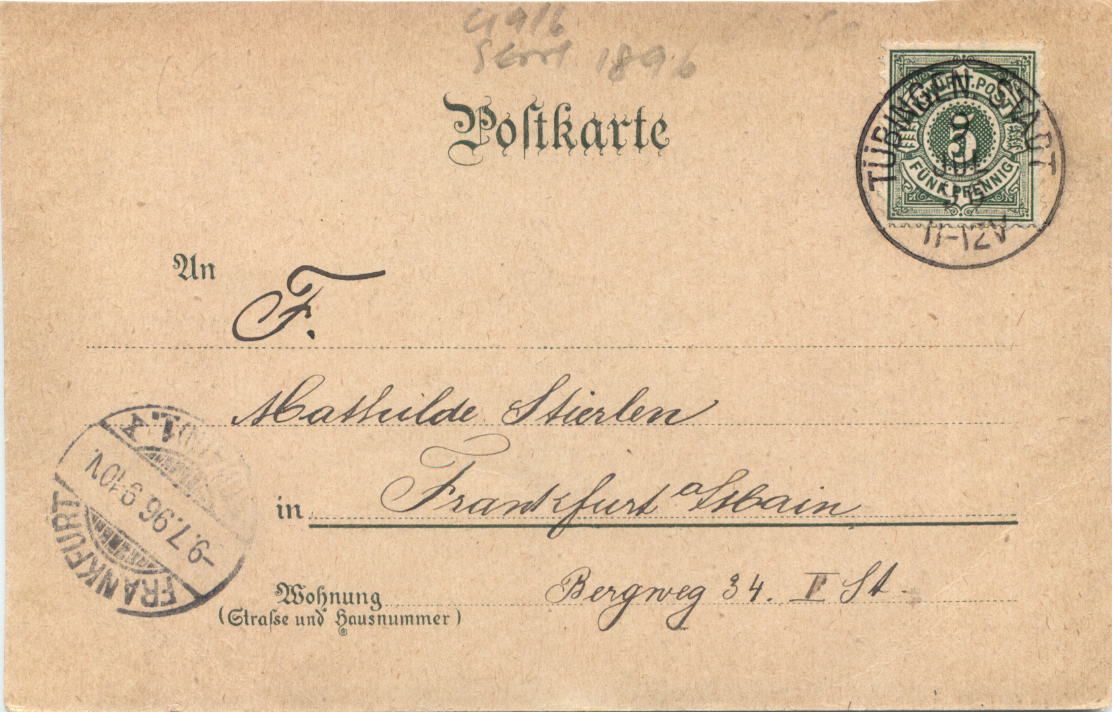 1896
Postkarte
WÜRTT. POST
FÜNF PFENNIG
TÜBINGEN. STADT
8
JUL
11-12V
An F.
Mathilde Stierlen
in Frankfurt a/Main
Wohnung Bergweg 34. II St.
(Straſse und Hausnummer)
FRANKFURT
-9.7.96 9-10V.